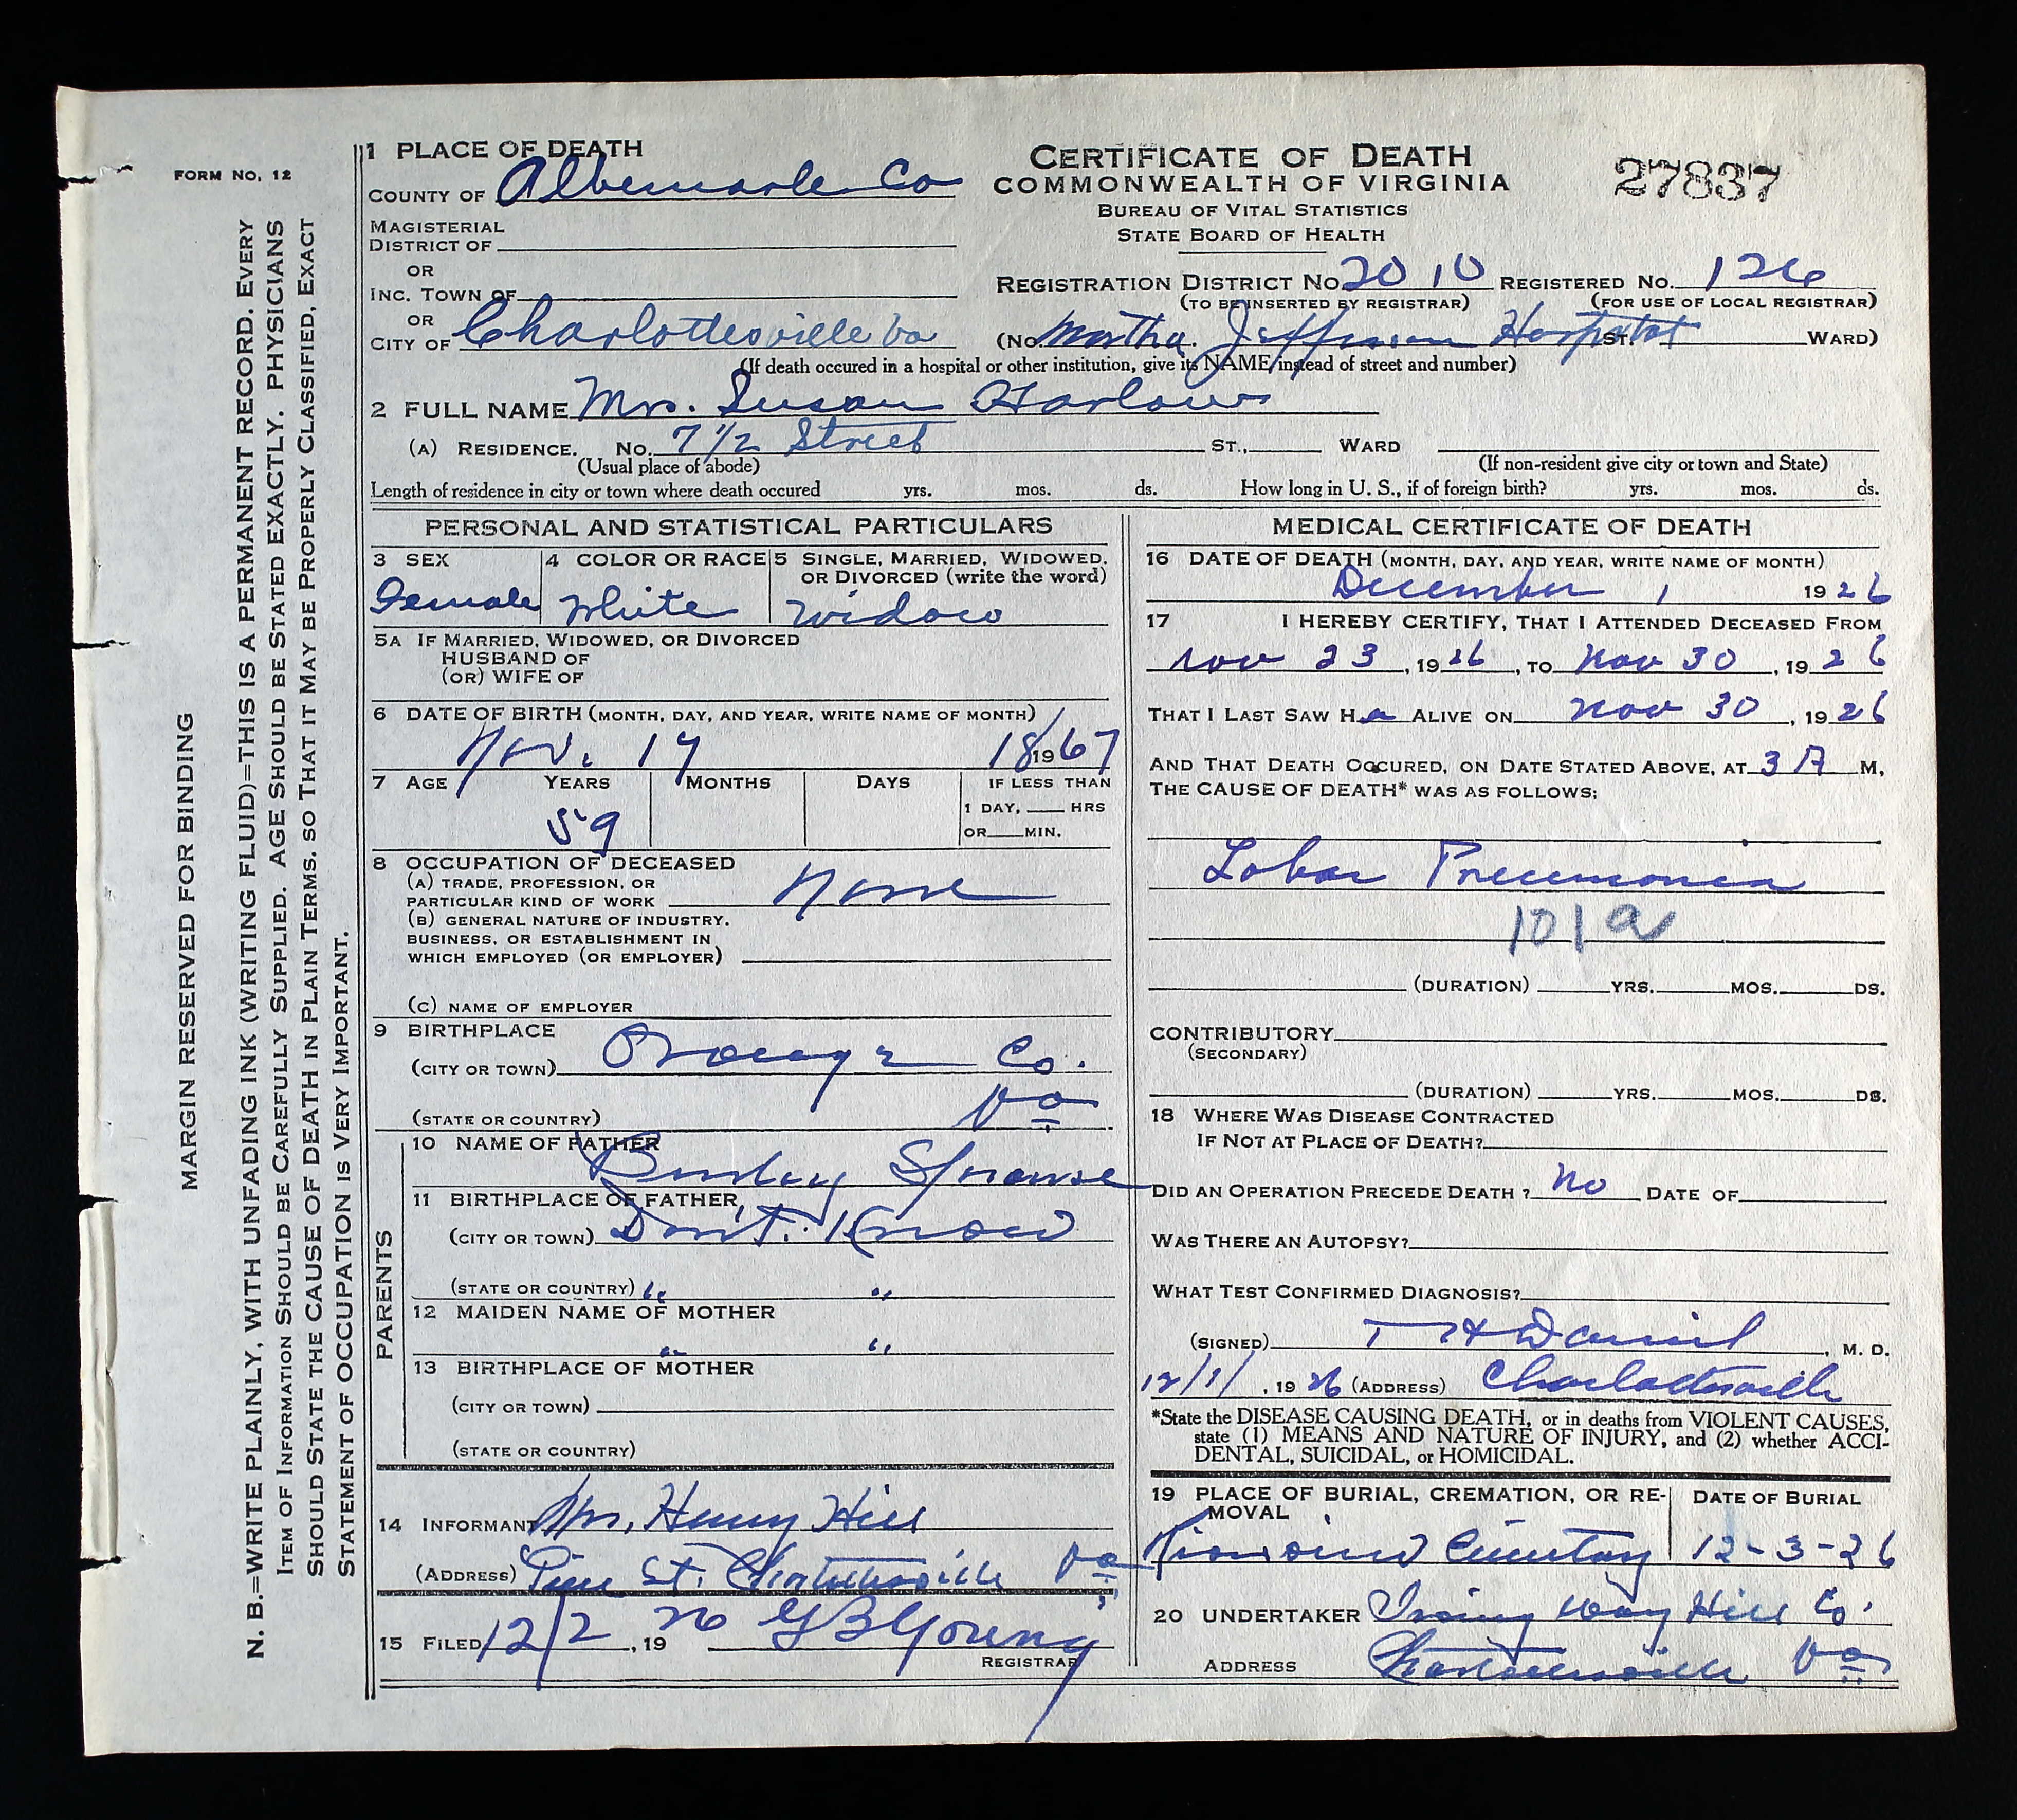 FORM NO. 12
MARGIN RESERVED FOR BINDING
N. B.=WRITE PLAINLY, WITH UNFADING INK (WRITING FLUID)=THIS IS A PERMANENT RECORD. EVERY
ITEM OF INFORMATION SHOULD BE CAREFULLY SUPPLIED. AGE SHOULD BE STATED EXACTLY. PHYSICIANS
SHOULD STATE THE CAUSE OF DEATH IN PLAIN TERMS, SO THAT IT MAY BE PROPERLY CLASSIFIED, EXACT
STATEMENT OF OCCUPATION IS VERY IMPORTANT.
CERTIFICATE OF DEATH
COMMONWEALTH OF VIRGINIA
BUREAU OF VITAL STATISTICS
STATE BOARD OF HEALTH
27837
1 PLACE OF DEATH
COUNTY OF Albemarle Co
MAGISTERIAL
DISTRICT OF
OR
INC. TOWN OF
OR
CITY OF Charlottesville Va
REGISTRATION DISTRICT NO. 2010 REGISTERED NO. 126
(TO BE INSERTED BY REGISTRAR) (FOR USE OF LOCAL REGISTRAR)
(NO. Martha Jefferson Hospital ST. WARD)
(If death occured in a hospital or other institution, give its NAME instead of street and number)
2 FULL NAME Mrs. Susan Harlow
(A) RESIDENCE. NO. 7 1/2 Street ST., WARD
(Usual place of abode) (If non-resident give city or town and State)
Length of residence in city or town where death occured yrs. mos. ds. How long in U. S., if of foreign birth? yrs. mos. ds.
PERSONAL AND STATISTICAL PARTICULARS
3 SEX 4 COLOR OR RACE 5 SINGLE, MARRIED, WIDOWED,
OR DIVORCED (write the word)
Female White Widow
5A IF MARRIED, WIDOWED, OR DIVORCED
HUSBAND OF
(OR) WIFE OF
6 DATE OF BIRTH (MONTH, DAY, AND YEAR, WRITE NAME OF MONTH)
Nov. 17 18 19 67
7 AGE YEARS MONTHS DAYS IF LESS THAN
1 DAY, HRS
OR MIN.
59
8 OCCUPATION OF DECEASED
(A) TRADE, PROFESSION, OR
PARTICULAR KIND OF WORK None
(B) GENERAL NATURE OF INDUSTRY,
BUSINESS, OR ESTABLISHMENT IN
WHICH EMPLOYED (OR EMPLOYER)
(C) NAME OF EMPLOYER
9 BIRTHPLACE
(CITY OR TOWN) Orange Co.
(STATE OR COUNTRY) Va
PARENTS
10 NAME OF FATHER
Sprouse
11 BIRTHPLACE OF FATHER,
(CITY OR TOWN) Don't Know
(STATE OR COUNTRY) " "
12 MAIDEN NAME OF MOTHER
" "
13 BIRTHPLACE OF MOTHER
(CITY OR TOWN)
(STATE OR COUNTRY)
14 INFORMANT Mrs. Henry Hill
(ADDRESS) Pine St. Charlottesville Va
15 FILED 12/2, 19 26 G B Young
REGISTRAR
MEDICAL CERTIFICATE OF DEATH
16 DATE OF DEATH (MONTH, DAY, AND YEAR, WRITE NAME OF MONTH)
December 1 1926
17 I HEREBY CERTIFY, THAT I ATTENDED DECEASED FROM
Nov 23, 1926, TO Nov 30, 1926
THAT I LAST SAW H ALIVE ON Nov 30, 1926
AND THAT DEATH OCCURED, ON DATE STATED ABOVE, AT 3 A M,
THE CAUSE OF DEATH* WAS AS FOLLOWS:
Lobar Pneumonia
101a
(DURATION) YRS. MOS. DS.
CONTRIBUTORY
(SECONDARY)
(DURATION) YRS. MOS. DS.
18 WHERE WAS DISEASE CONTRACTED
IF NOT AT PLACE OF DEATH?
DID AN OPERATION PRECEDE DEATH? No DATE OF
WAS THERE AN AUTOPSY?
WHAT TEST CONFIRMED DIAGNOSIS?
(SIGNED) Daniel, M. D.
12/1/, 1926 (ADDRESS) Charlottesville
*State the DISEASE CAUSING DEATH, or in deaths from VIOLENT CAUSES,
state (1) MEANS AND NATURE OF INJURY, and (2) whether ACCI-
DENTAL, SUICIDAL, or HOMICIDAL.
19 PLACE OF BURIAL, CREMATION, OR RE-
MOVAL DATE OF BURIAL
Cemetery 12-3-26
20 UNDERTAKER Irving Way Hill Co.
ADDRESS Charlottesville Va